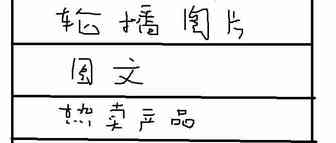 轮播图片
图文
热卖产品